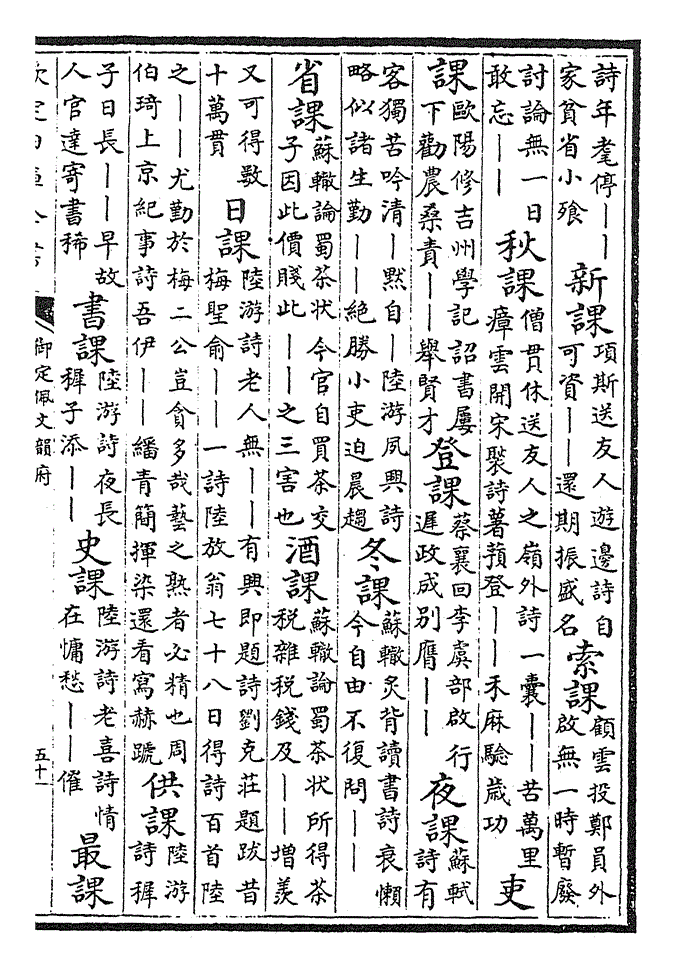 詩年耄停——家貧省小飱 新課 項斯送友人遊邊詩自可資——還期振盛名 索課 顧雲投鄭員外啟無一時暫廢
討論無一日敢忘—— 秋課 僧貫休送友人之嶺外詩一囊——苦萬里瘴雲開宋褧詩著蘋登——禾麻驗歲功 吏
課 歐陽修吉州學記詔書屢下勸農桑責——舉賢才 登課 蔡襄回李虞部啟行遲政成別膺—— 夜課 蘇軾詩有
客獨苦吟清—默自—陸游夙興詩略似諸生勤——絕勝小吏迫晨趨 冬課 蘇轍炙背讀書詩衰懶今自由不復問——
省課 蘇轍論蜀茶狀今官自買茶交子因此價賤此——之三害也 酒課 蘇轍論蜀茶狀所得茶税雜税錢及——增羨
又可得數十萬貫 日課 陸游詩老人無——有興即題詩劉克莊題跋昔梅聖俞——一詩陸放翁七十八日得詩百首陸
之——尤勤於梅二公豈貪多哉藝之熟者必精也周伯琦上京紀事詩吾伊——繙青簡揮染還看寫赫蹏 供課 陸游詩穉
子日長——早故人官達寄書稀 書課 陸游詩夜長穉子添—— 史課 陸游詩老喜詩情在慵愁——催 最課
欽定四庫全書 御定佩文韻府 五十一